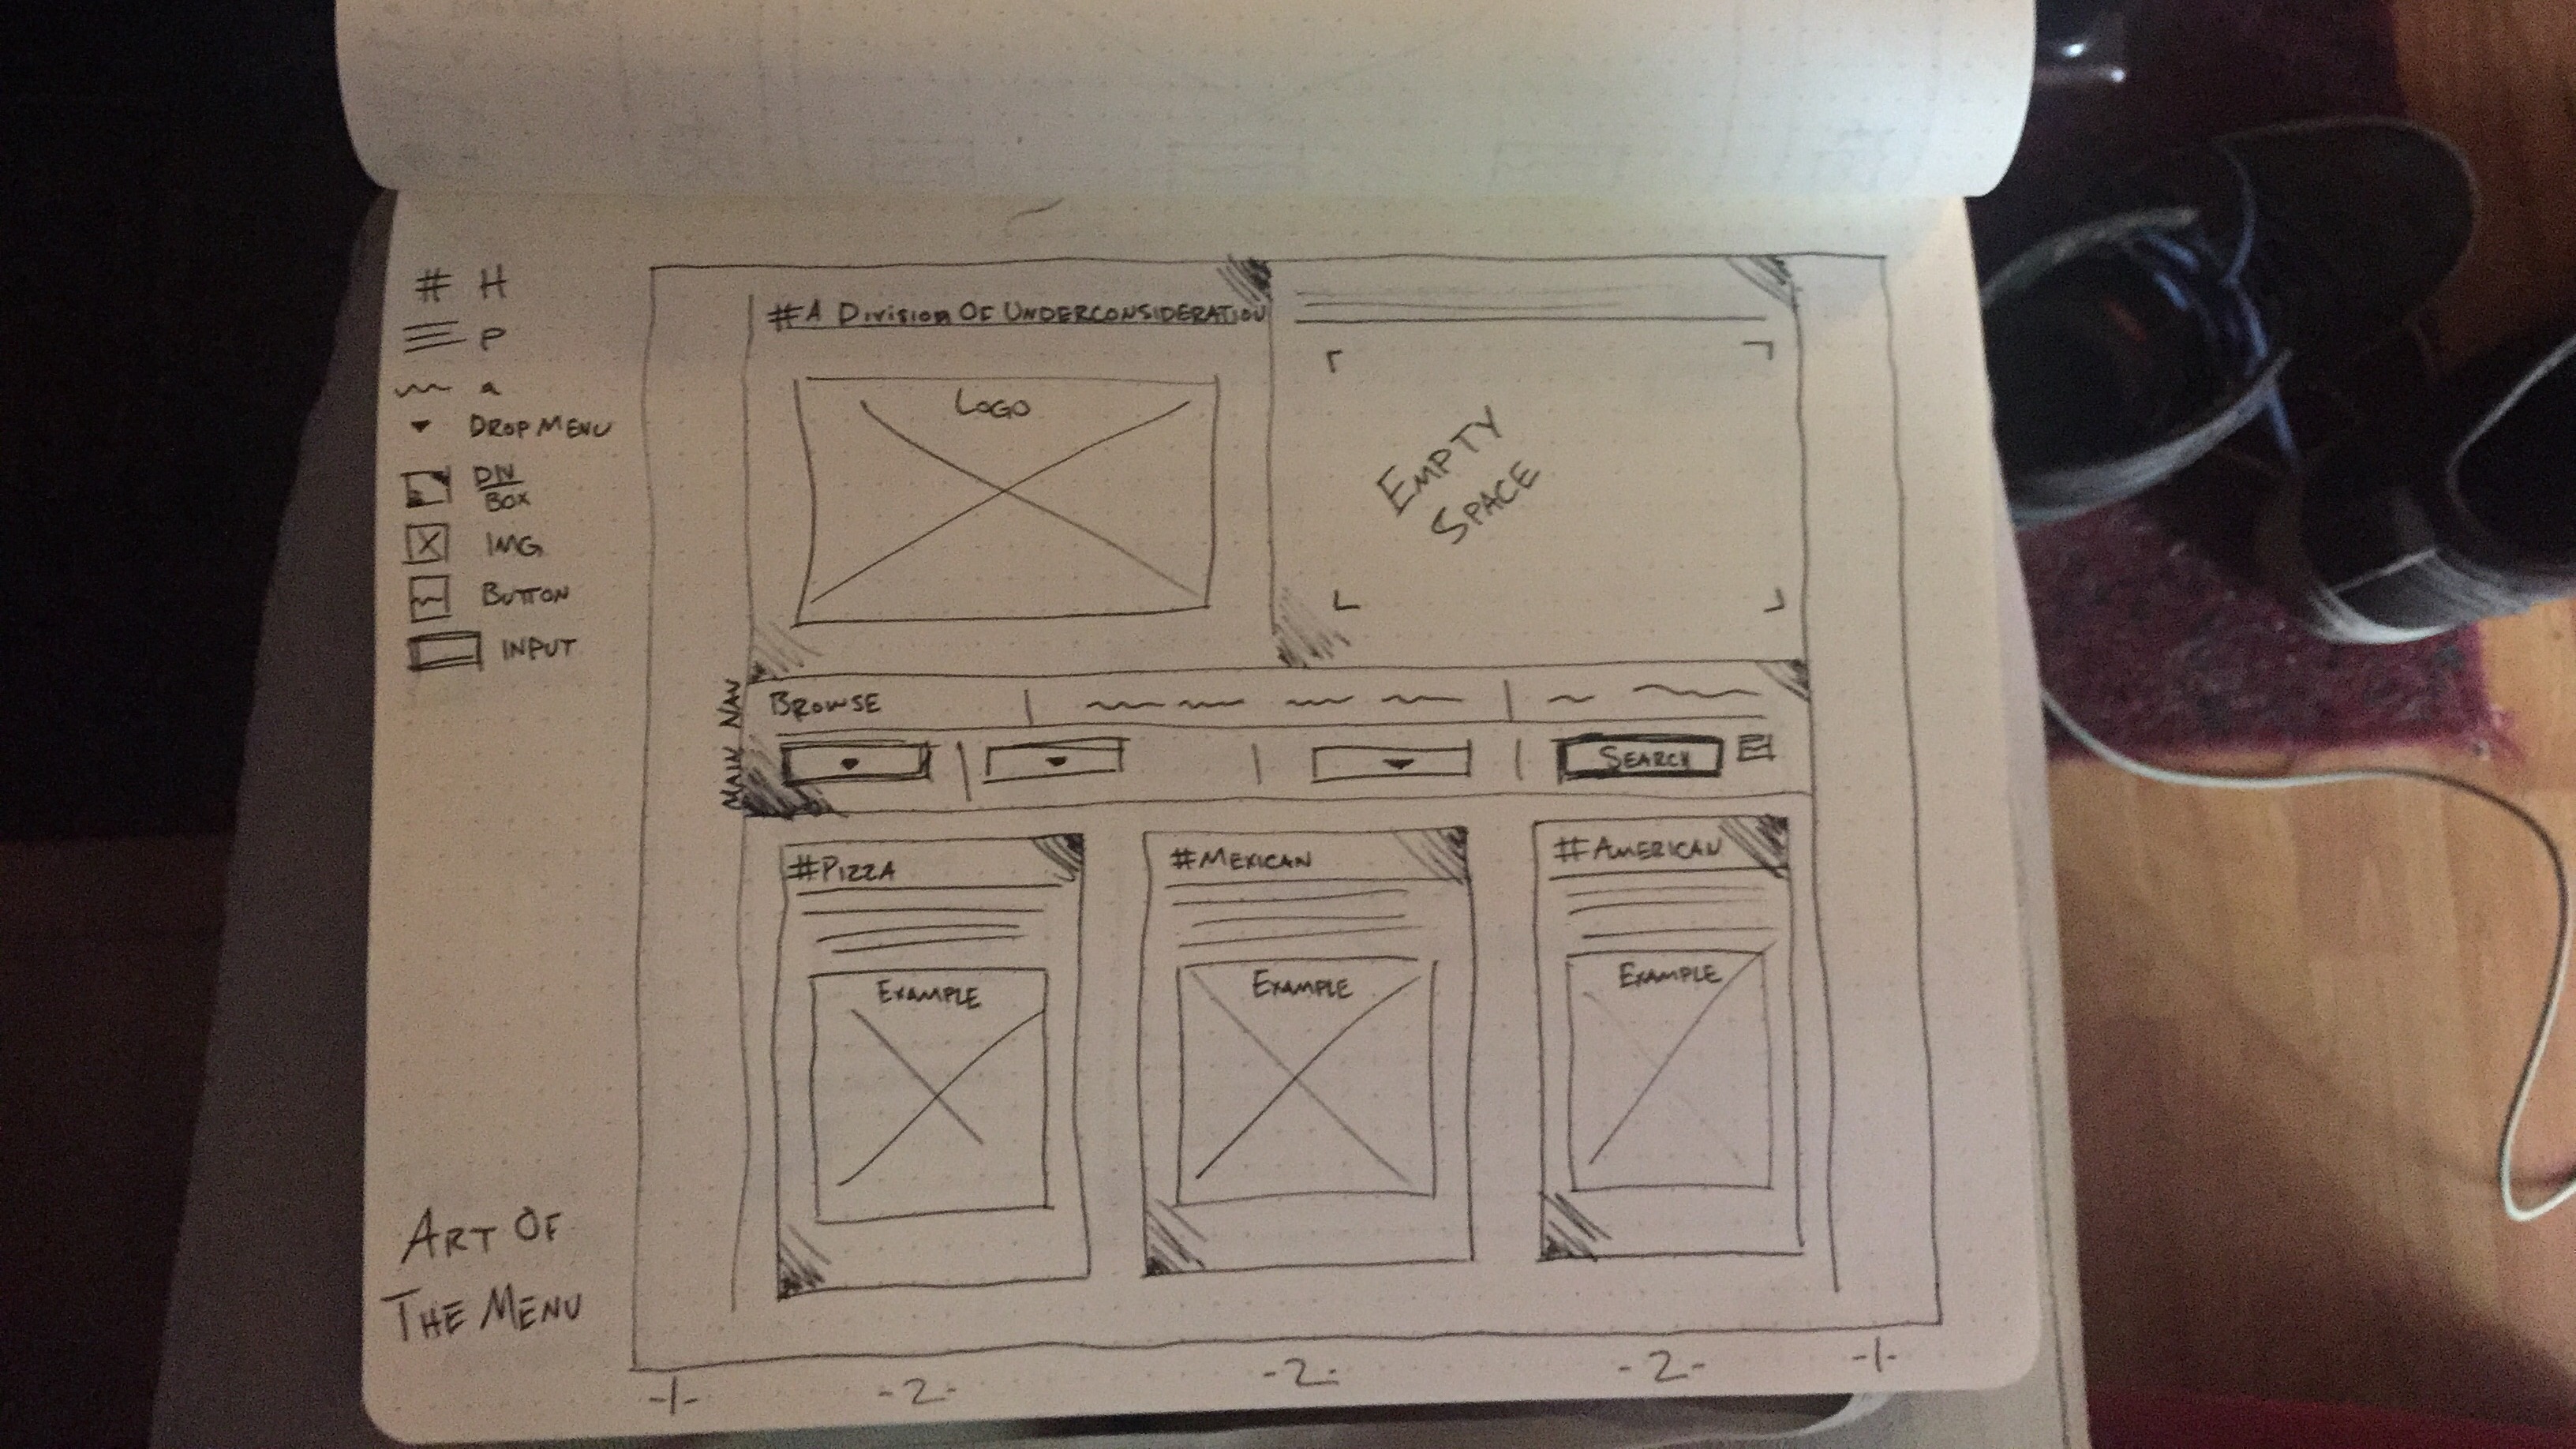 # H
P
a
DROP MENU
DIV
BOX
IMG
BUTTON
INPUT
ART OF
THE MENU
#A DIVISION OF UNDERCONSIDERATION
LOGO
EMPTY
SPACE
MAIN NAV
BROWSE
SEARCH
#PIZZA
EXAMPLE
#MEXICAN
EXAMPLE
#AMERICAN
EXAMPLE
-1- -2- -2- -2- -1-